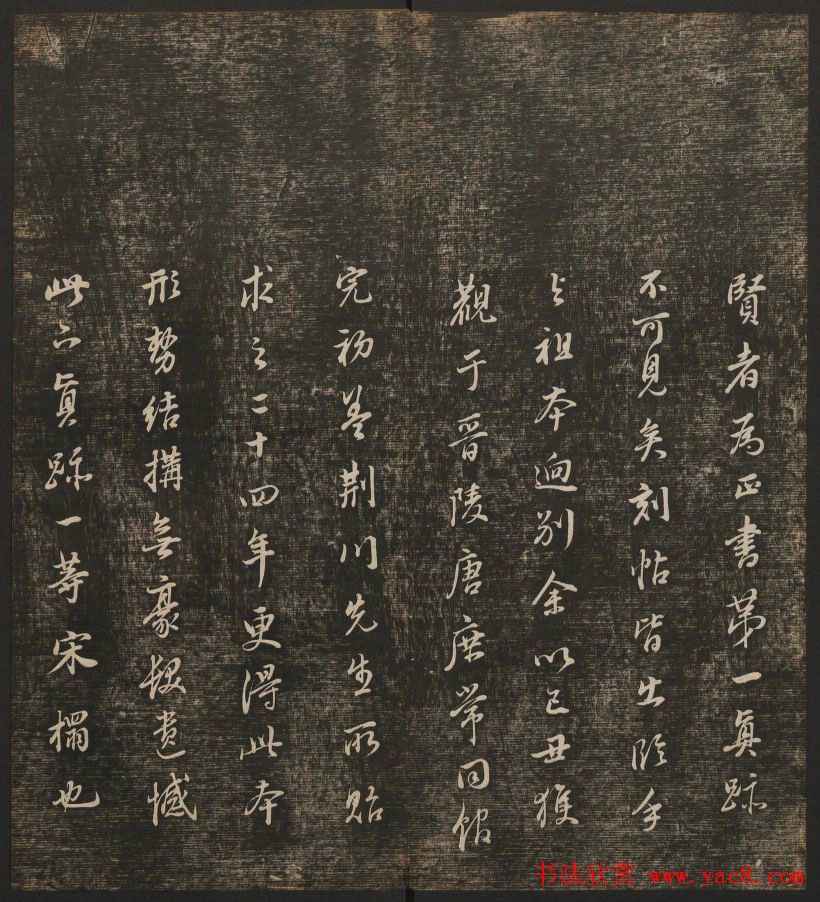 賢者為正書第一真跡
不可見矣刻帖皆出臨手
與祖本迥别余以己丑獲
觀于晉陵唐庶常同館
完初盖荆川先生所貽
求之二十四年更得此本
形勢結搆無豪髮遺憾
此亦真跡一等宋搨也
书法欣赏 www.yac8.com